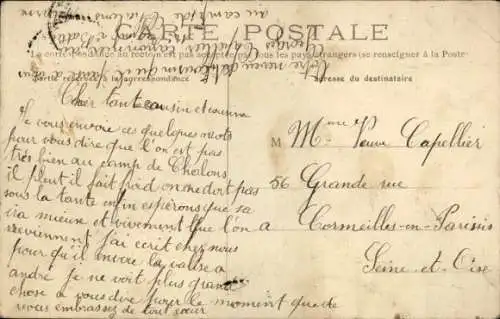 CARTE POSTALE
La correspondance au recto n'est pas acceptée par tous les pays étrangers (se renseigner à la Poste
Partie réservée à la correspondance
Adresse du destinataire
Cher tante cousin et cousine
Je vous envoie ces quelques mots
pour vous dire que l'on est pas
très bien au camp de Chalons
il pleut il fait froid on ne dort pas
sous la tante enfin espérons que sa
ira mieux et vivement que l'on a
reviennent j'ai ecrit chez nous
pour qu'il envoie la valise a
andré je ne voit plus grand
chose a vous dire pour le moment que de
vous embrassez de tout cœur
votre neveu et cousin qui
Georges Capellier
au camp de Chalons
M Mme Veuve Capellier
56 Grande rue
Cormeilles-en-Parisis
Seine-et-Oise